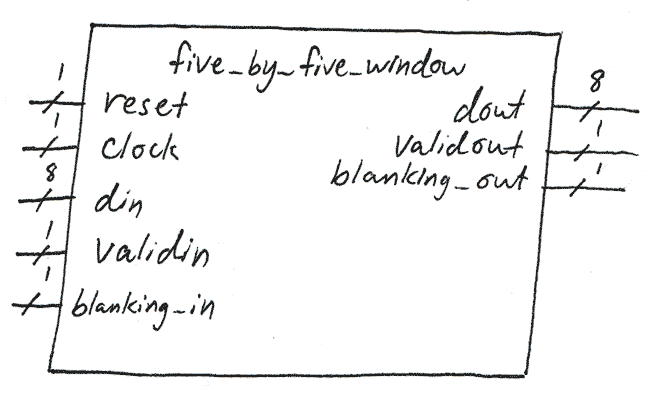 five_by_five_window
1 reset
1 Clock
8 din
1 validin
1 blanking_in
dout 8
validout 1
blanking_out 1